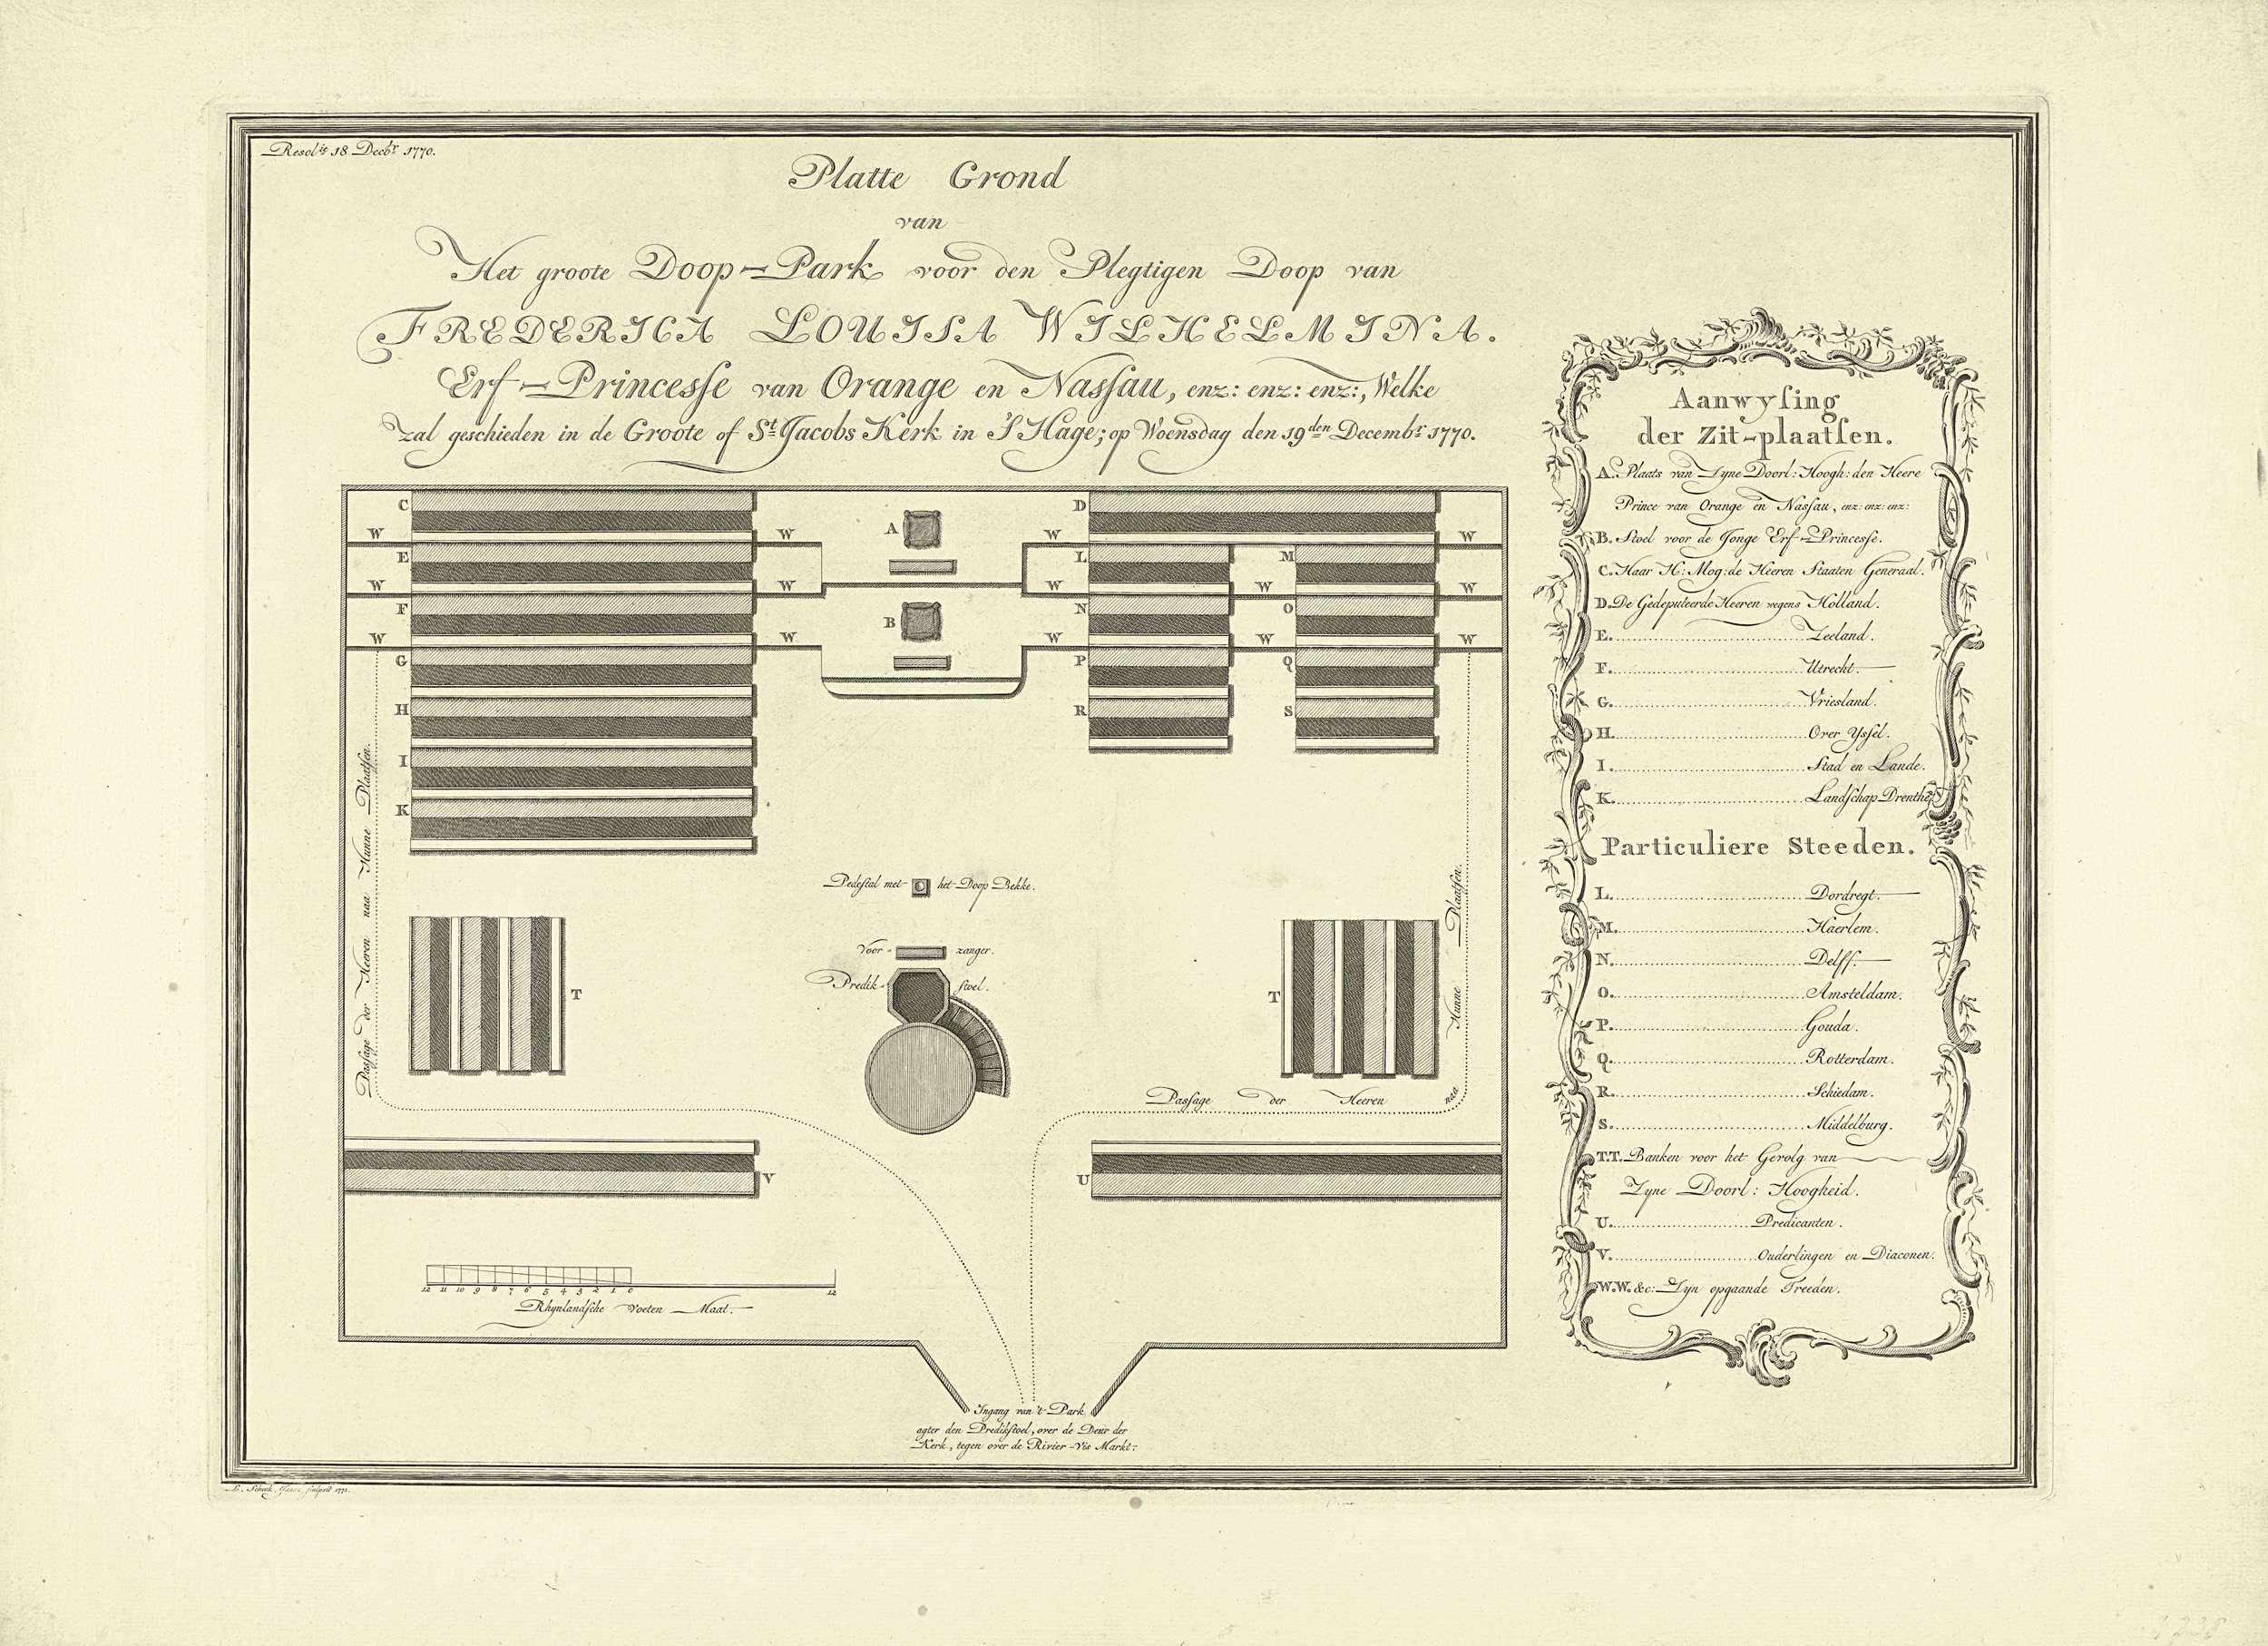 Resol:is 18 Decbr 1770.
Platte Grond
van
Het groote Doop-Park voor den Plegtigen Doop van
FREDERICA LOUISA WILHELMINA.
Erf-Princesse van Orange en Nassau, enz: enz: enz:, Welke
zal geschieden in de Groote of St Jacobs Kerk in 'S Hage; op Woensdag den 19den Decembr 1770.
C
D
A
W
W
W
W
E
L
M
W
W
W
W
W
F
B
N
O
W
W
W
W
W
G
P
Q
H
R
S
I
K
Passage der Heeren naa Hunne Plaatsen.
Pedestal met het Doop Bekke.
Voor-zanger.
Predik-stoel.
T
T
Passage der Heeren naa Hunne Plaatsen.
V
U
12 11 10 9 8 7 6 5 4 3 2 1 0 12
Rhynlandsche voeten Maat.
Ingang van 't Park
agter den Predikstoel, over de Deur der
Kerk, tegen over de Rivier-Vis Markt:
Aanwysing
der Zit-plaatsen.
A. Plaats van Zyne Doorl: Hoogh: den Heere
Prince van Orange en Nassau, enz: enz: enz:
B. Stoel voor de Jonge Erf-Princesse.
C. Haar H: Mog: de Heeren Staaten Generaal.
D. De Gedeputeerde Heeren wegens Holland.
E. Zeeland.
F. Utrecht.
G. Vriesland.
H. Over Yssel.
I. Stad en Lande.
K. Landschap Drenthe
Particuliere Steeden.
L. Dordregt.
M. Haerlem.
N. Delff.
O. Amsteldam.
P. Gouda.
Q. Rotterdam.
R. Schiedam.
S. Middelburg.
T.T. Banken voor het Gevolg van
Zyne Doorl: Hoogheid.
U. Predicanten.
V. Ouderlingen en Diaconen.
W.W. &c: Zyn opgaande Treeden.
sculpsit 1771.